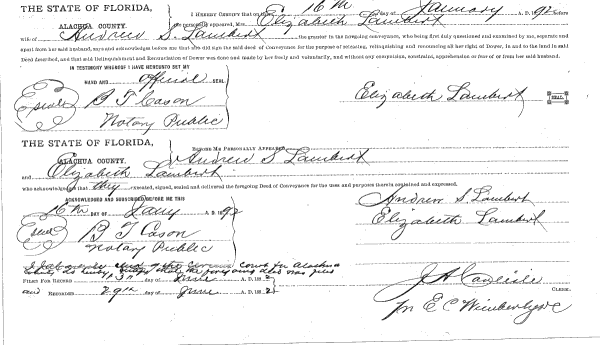 THE STATE OF FLORIDA,
ALACHUA COUNTY.
I HEREBY CERTIFY that on this 16th day of January A. D. 1892 before
me personally appeared, Mrs. Elizabeth Lambert
wife of Andrew S. Lambert the grantor in the foregoing conveyance, who being first duly questioned and examined by me, separate and
apart from her said husband, says and acknowledges before me that she did sign the said deed of Conveyance for the purpose of releasing, relinquishing and renouncing all her right of Dower, in and to the land in said
Deed described, and that said Relinquishment and Renunciation of Dower was done and made by her freely and voluntarily, and without any compulsion, constraint, apprehension or fear of or from her said husband.
IN TESTIMONY WHEREOF I HAVE HEREUNTO SET MY
HAND AND official SEAL
Seal B T Cason
Notary Public
Elizabeth Lambert SEAL.
THE STATE OF FLORIDA,
ALACHUA COUNTY.
BEFORE ME PERSONALLY APPEARED
Andrew S Lambert
and Elizabeth Lambert
who acknowledged that they executed, signed, sealed and delivered the foregoing Deed of Conveyance for the uses and purposes therein contained and expressed.
ACKNOWLEDGED AND SUBSCRIBED BEFORE ME THIS
16th DAY OF Jany A. D. 1892
Seal B T Cason
Notary Public
Andrew S Lambert
Elizabeth Lambert
Clerk of the Circuit Court for Alachua
County that the foregoing deed was
FILED FOR RECORD day of June A. D. 1892
and RECORDED 29th day of June 1892
J A Carlisle
CLERK.
pr E C Wimberly DC